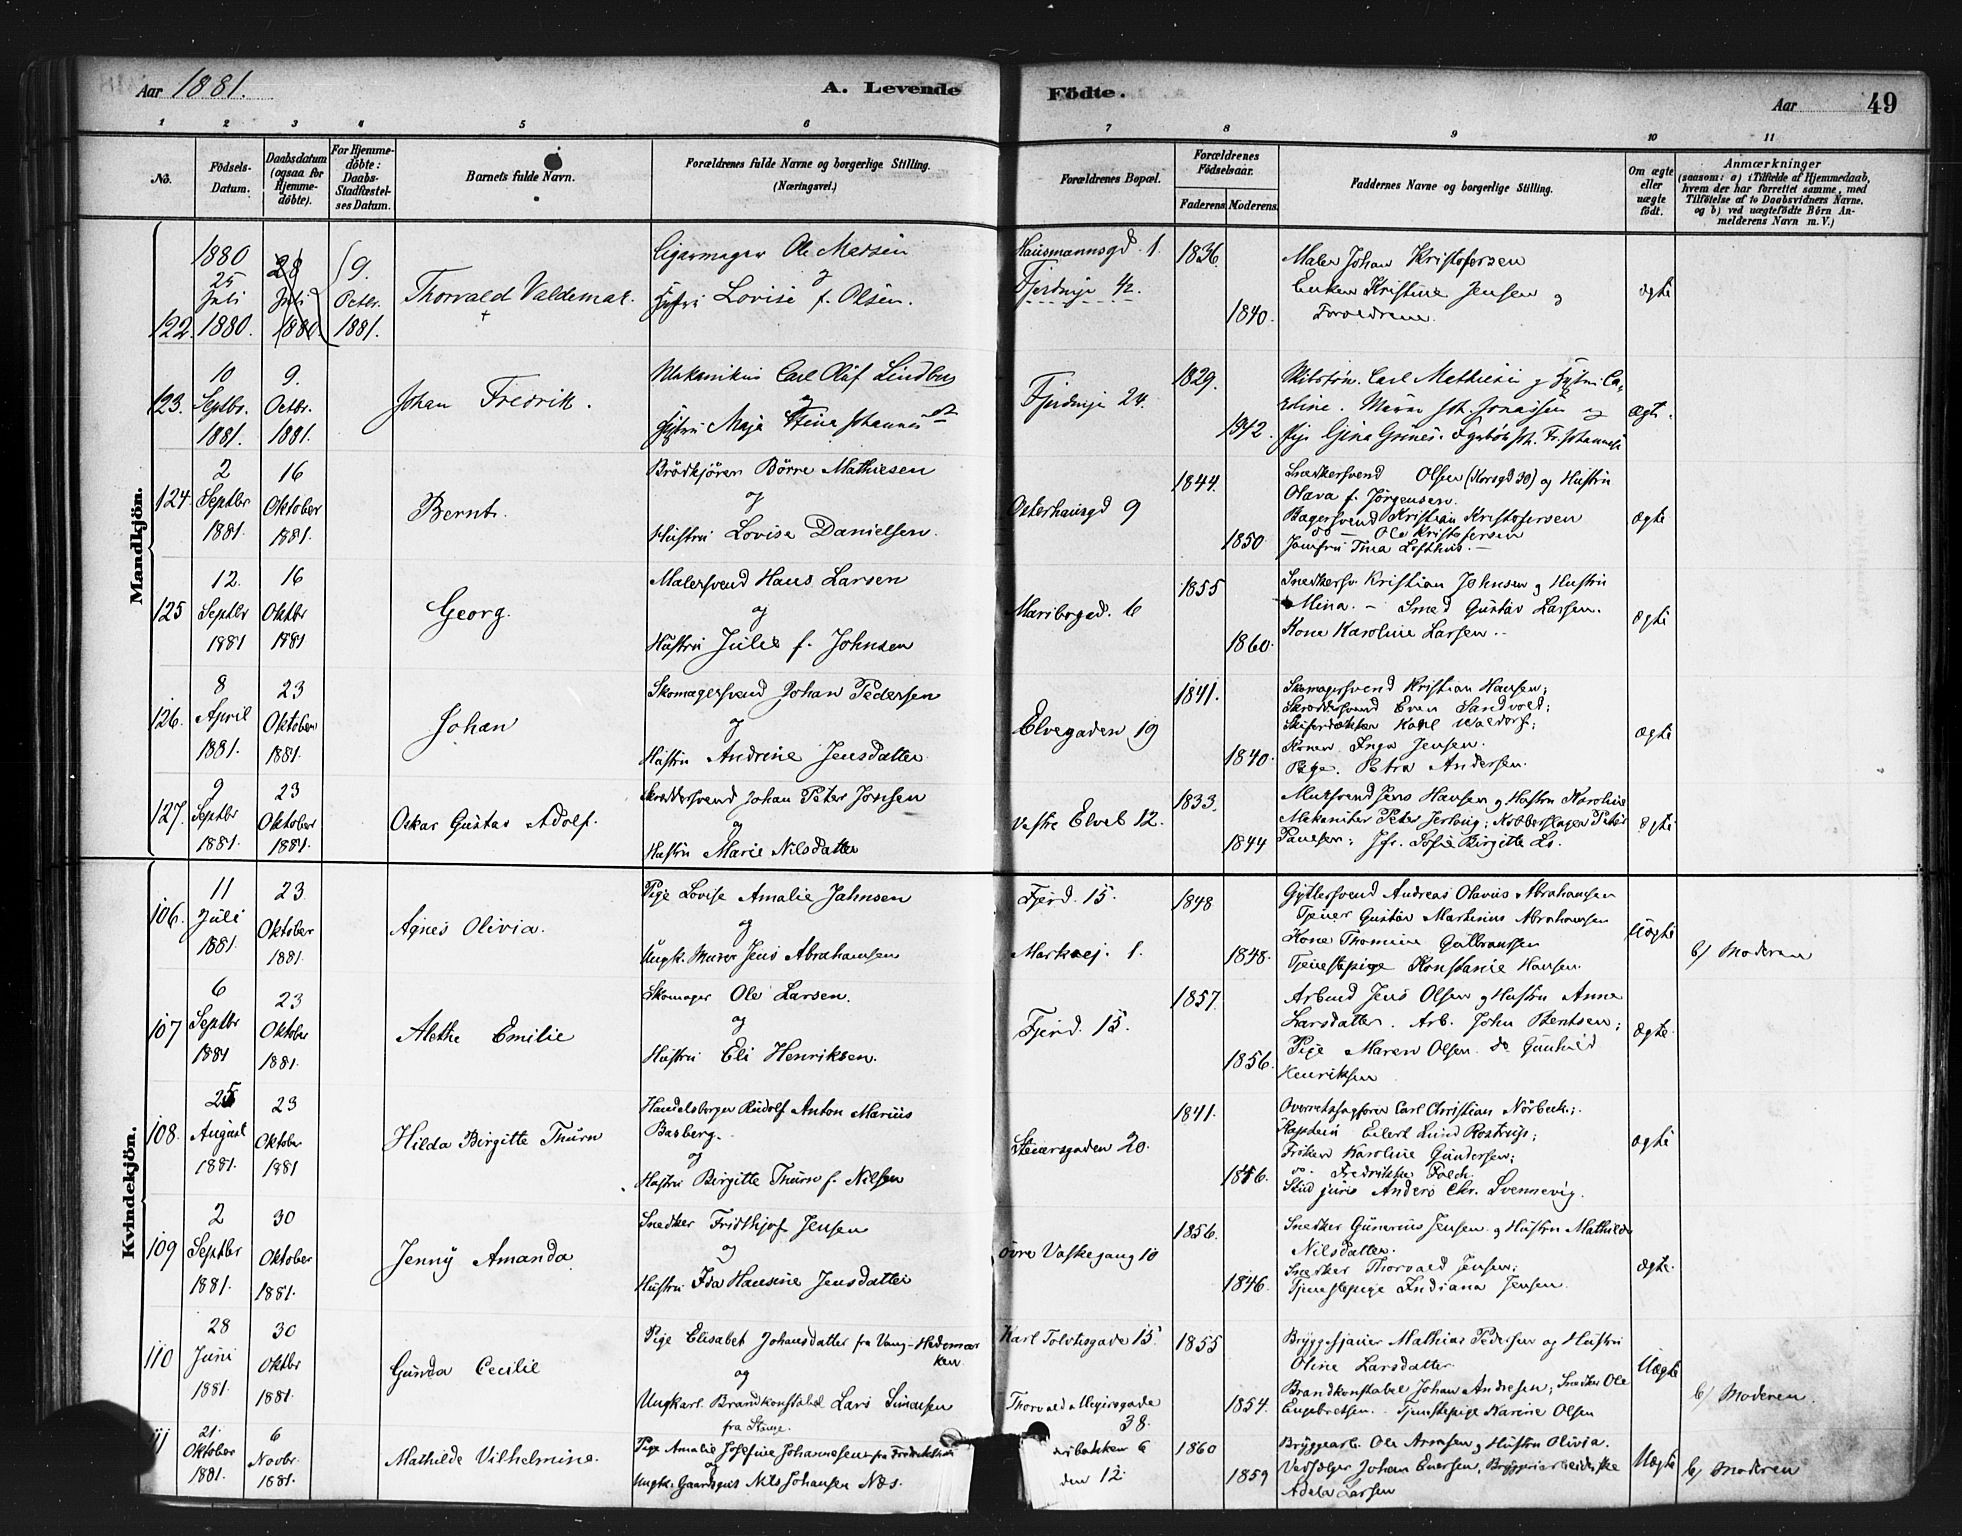 Aar 1881.
A. Levende Födte.
Aar 49
1 2 3 4 5 6 7 8 9 10 11
No.
Födsels-Datum.
Daabsdatum (ogsaa for Hjemme-döbte).
For Hjemme-döbte: Daabs-Stadfæstel-ses Datum.
Barnets fulde Navn.
Forældrenes fulde Navne og borgerlige Stilling.
(Næringsvei.)
Forældrenes Bopæl.
Forældrenes Födselsaar.
Faderens. Moderens.
Faddernes Navne og borgerlige Stilling.
Om ægte eller uægte födt.
Anmærkninger
(saasom: a) i Tilfælde af Hjemmedaab,
hvem der har forrettet samme, med
Tilföielse af to Daabsvidners Navne,
og b) ved uægtefödte Börn An-
melderens Navn m. V.)
Mandkjön.
122. 1880 25 Juli 1880. 28 Juli 1880. 9. Octbr. 1881.
Thorvald Valdemar.
Cigarmager Ole Madsen
og
Hustru Lovise f. Olsen.
Hausmannsgd. 1.
Fjerdingv 42.
1836. 1840.
Maler Johan Kristofersen
Enken Kristine Jensen og
Foreldrene.
ægte
123. 10 Septbr. 1881. 9. Octbr. 1881.
Johan Fredrik.
Mekanikus Carl Oluf Lindberg
og
Hustru Maja Stina Johannesdt
Fjerdingv 24.
1829. 1842.
Carl Mathisen og Hustru Ca-
roline.
Pige Gina
Ægte.
124. 2 Septbr 1881. 16 Oktober 1881.
Bernt.
Brödkjörer Börre Mathiesen
og
Hustru Lovise Danielsen.
Osterhausgd 9
1844. 1850
Snedkersvend Olsen (Korsgd 30) og Hustru
Olava f. Jörgensen.
Bagersvend Kristian Kristofersen
do — Ole Kristofersen
Jomfru Tina Lofthus. —
Ægte
125 12. Septbr 1881 16 Oktbr 1881
Georg.
Malersvend Hans Larsen
og
Hustru Julie f. Johnsen
Maribogad. 6
1855 1860.
Snedkersv. Kristian Johnsen og Hustru
Mina. — Smed Gustav Larsen.
Kone Karoline Larsen..
Ægte
126. 8 April 1881. 23 Oktober 1881.
Johan
Skomagersvend Johan Pedersen
og
Hustru Andrine Jensdatter
Elvegaden 19
1841. 1840.
Skomagersvend Kristian Hansen;
Skræddersvend Even Sandvold;
Skiferdækker Karl Waldorf;
Konen Inga Jensen.
Pige. Petra Andersen.
Ægte
127. 9 Septbr 1881. 23 Oktober 1881.
Oskar Gustav Adolf.
Skræddersvend Johan Peter Jonsen
og
Hustru Marie Nilsdatter
Vestre Elveb 12.
1833. 1844
Mursvend Jens Hansen og Hustru Karoline
Mekaniker Peter; Kobberslager Peter
Paulsen; Jfr. Sofie Birgitte Ls.
Ægte
Kvindekjön.
106. 11 Juli 1881. 23 Oktober 1881.
Agnes Olivia.
Pige Lovise Amalie Jahnsen
og
Ungk. Murer Jens Abrahamsen
Fjerd. 15.
Markvej. 1.
1848 1848.
Gjörtlersvend Andreas Olavus Abrahamsen
Tjener Gustav Martinius Abrahamsen
Kone Thomine Gulbransen
Tjenestepige Konstanse Hansen.
Uægte
b/ Moderen
107 6 Septbr 1881 23 Oktober 1881.
Alethe Emilie
Skomager Ole Larsen.
og
Hustru Eli Henriksen.
Fjerd. 15.
1857. 1856.
Arbmd Jens Olsen og Hustru Anne
Larsdatter. Arb. John Bentsen;
Pige Maren Olsen. do Gunhild
Henriksen
Ægte.
108. 25 August 1881. 23 Oktober 1881
Hilda Birgitte Thurn
Handelsborger Rudolf Anton Marius
Basberg.
og
Hustru Birgitte Thurn f. Nilsen
Steensgaden 20.
1841. 1846.
Overretssagförer Carl Christian Nörbeck;
Kaptein Eilert Lund Rostrup;
Fröken Karoline Gundersen;
do. Fredrikke Foldt.
Stud juris Anders Chr. Svennevig.
Ægte
109 2 Septbr 1881. 30 Oktober 1881.
Jenny Amanda
Snedker Fridthjof Jensen
og
Hustru Ida Hansine Jensdatter
Övre Vaskegang 10
1856. 1846.
Snedker Gunerius Jensen og Hustru Mathilde
Nilsdatter.
Snedker Thorvald Jensen;
Tjenestepige Indiana Jensen.
Ægte.
110 28 Juni 1881. 30 Oktbr 1881.
Gunda Cecilie
Pige Elisabet Johansdatter fra Vang-Hedemar
ken.
og
Ungkarl. Brandkonstabel Lars Simensen
fra Stange.
Karl Toldtsgade 15.
Thorvald Meyersgade 38.
1855 1854.
Bryggesjauer Mathias Pedersen og Hustru
Oline Larsdatter
Brandkonstabel Johan Andresen; Snedker Ole
Engebretsen. Tjenestepige Karine Olsen
Uægte
b/ Moderen.
21. Oktober 1881. 6 Novbr. 1881.
Mathilde Vilhelmine.
Pige Amalie Josefine Johannesen fra Fredrikshald
og
Ungk. Gaardsgut Nils Johansen Næs.
bakken 6
den 12.
1860 1859
Bryggearb. Ole Arnesen og Hustru Olivia.
Vedsælger Johan Evensen, Bryggeriarbeiderske
Adela Larsen
Uægte
b/ Moderen